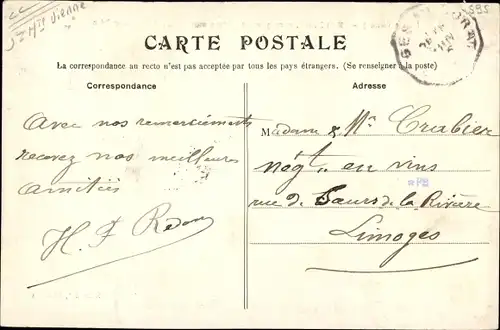 Hte Vienne
595
CARTE POSTALE
La correspondance au recto n'est pas acceptée par tous les pays étrangers. (Se renseigner à la poste)
Correspondance
Adresse
Avec nos remerciements
recevez nos meilleures
amitiés
H. F Redon
Madame & Mr Crubier
négt en vins
rue d. Sœurs de la Rivière
Limoges